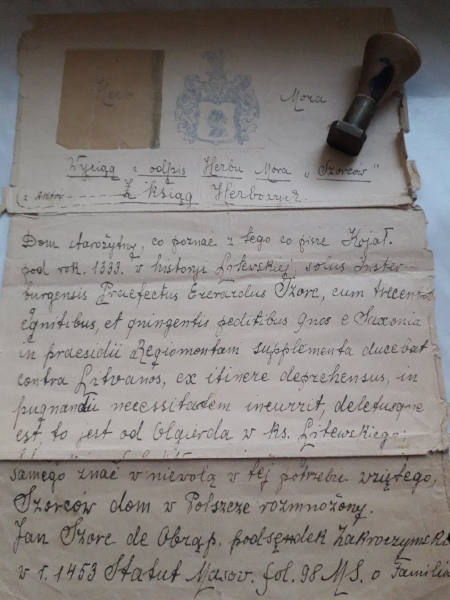 Herb
Mora
Wyciąg z odpis Herbu Mora "Szorców"
(z aktów z ksiąg Herbowych.
Dom starożytny, co poznać z tego co pisze Kojał.
pod rok. 1333. w historyi Litewskiej, solus Inster
burgensis Praefectus Everardus Szorc, cum trecentis
equitibus, et quingentis peditibus quos e Saxonia
in praesidii a Regiomontam supplementa ducebat
contra Litvanos, ex itinere deprehensus, in
pugnandi necessitatem incurrit, deletusque
est, to jest od Olgierda w ks. Litewskiego,
samego znać w niewolą w tej potrzebie wziętego,
Szorców dom w Polszcze rozmnożony.
Jan Szorc de Obrąp. podsędek Zakroczymski
w r. 1453 Statut Masov. fol. 98 MS. o Familia